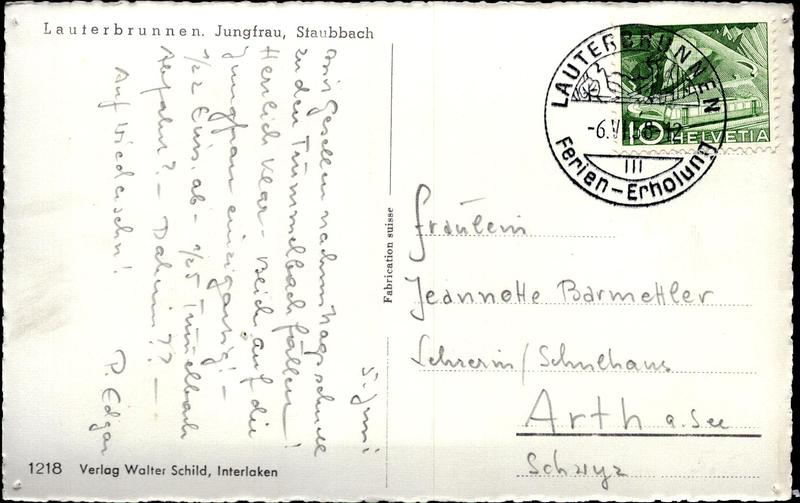 Lauterbrunnen. Jungfrau, Staubbach
5. Juni
Gesellen nachm
zu den Trümmelbachfällen!
Herrlich klar - Blick auf die
Jungfrau einzigartig! -
1/22 Eins. ab - 1/25 Trümmelbach
Daheim?? -
Auf Wiedersehn!
P. Edgar
Fabrication suisse
LAUTERBRUNNEN
-6.VI.58-12
III
Ferien-Erholung
10 HELVETIA
Fräulein
Jeannette Barmettler
Lehrerin / Schulhaus
Arth a. See
Schwyz
1218 Verlag Walter Schild, Interlaken